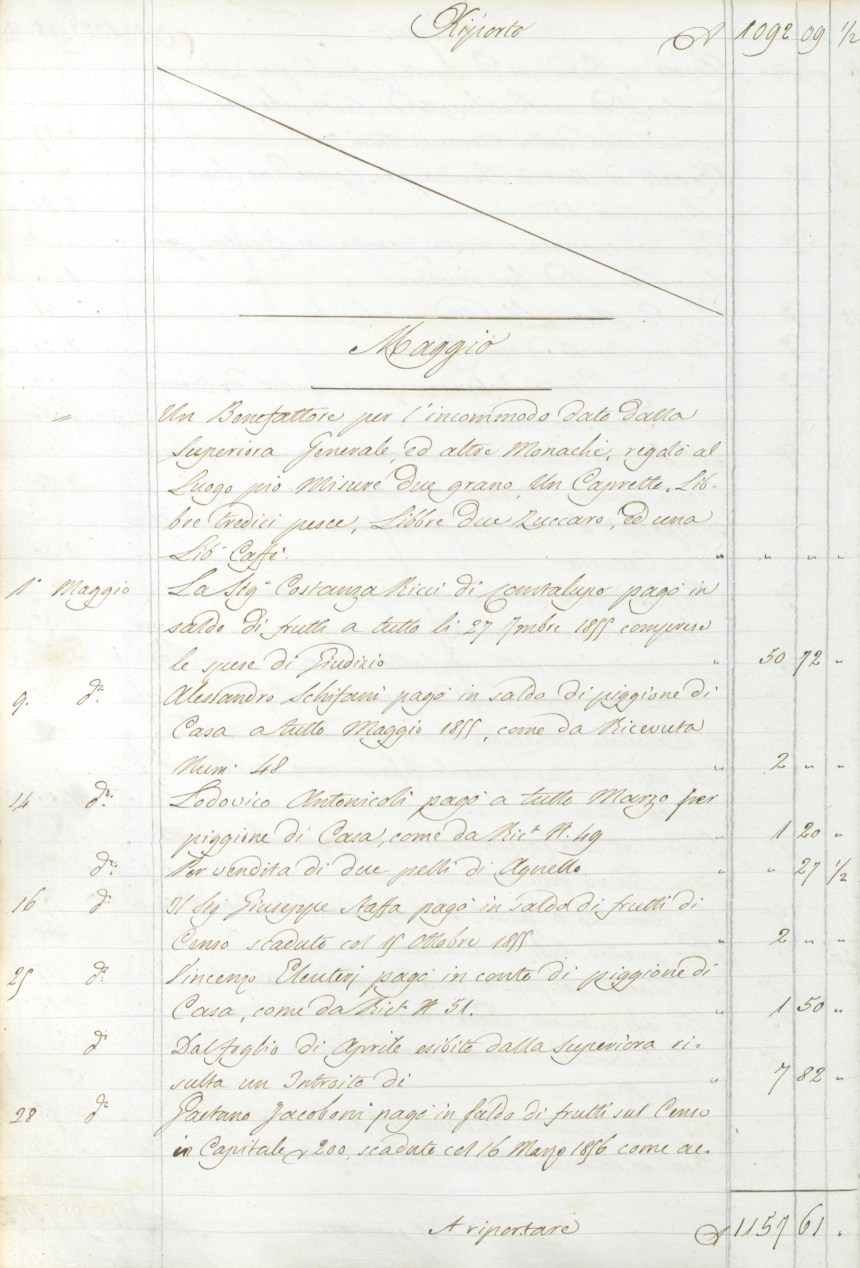 Riporto 1092 09 ½
Maggio
= Un Benefattore per l'incommodo dato dalla
Superiora Generale, ed altre Monache, regalò al
Luogo pio Misure due grano, Un Capretto, Lib-
bre tredici pesce, Libbre due Zuccaro, ed una
Lib.ª Caffè. " " " "
1° Maggio La Sig.ª Costanza Ricci di Cantalupo pagò in
saldo di frutti a tutto li 27 7mbre 1855 comprese
le spese di Giudizio " 50 72 "
9. d.º Alessandro Schifani pagò in saldo di piggione di
Casa a tutto Maggio 1855, come da Ricevuta
Num.º 48 " 2 " "
14 d.º Lodovico Antonicoli pagò a tutto Marzo per
piggione di Casa, come da Ric.ta N. 49 " 1 20 "
d.º Per vendita di due pelli di Agnello " " 27 ½
16 d.º Il Sig Giuseppe Staffa pagò in saldo di frutti di
Censo scaduto col 15 Ottobre 1855 " 2 " "
25 d.º Vincenzo Eleuterj pagò in conto di piggione di
Casa, come da Ric.ta N 51. " 1 50 "
d.º Dal foglio di Aprile esibito dalla Superiora ri-
sulta un Introito di " 7 82 "
28 d.º Gaetano Jacoboni pagò in saldo di frutti sul Censo
in Capitale 200, scaduto col 16 Marzo 1856 come ac-
A riportare 1157 61 "